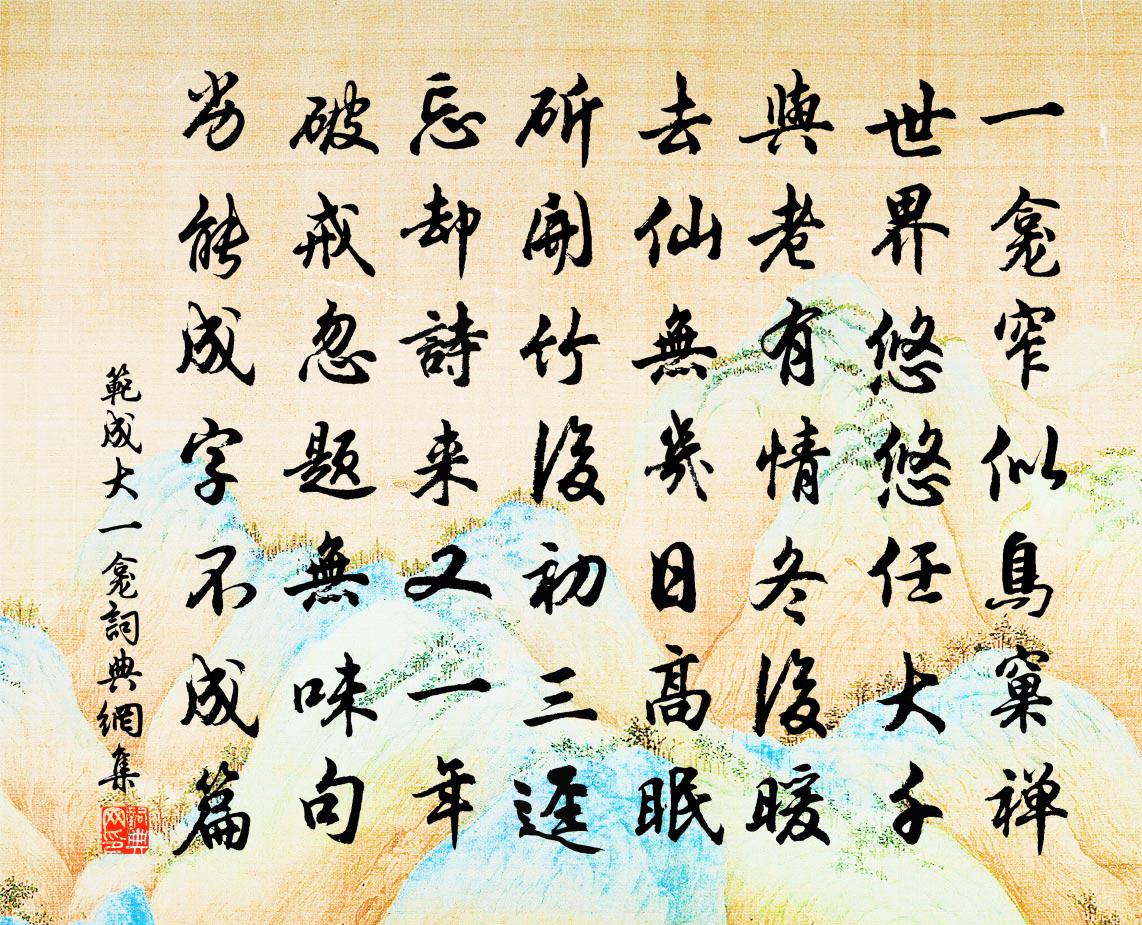 一龕窄似鳥窠禅
世界悠悠任大千
與老有情冬後暖
去仙無幾日高眠
斫開竹後初三逕
忘却詩来又一年
破戒忽題無味句
劣能成字不成篇
範成大一龕詞典網集
詞典网印